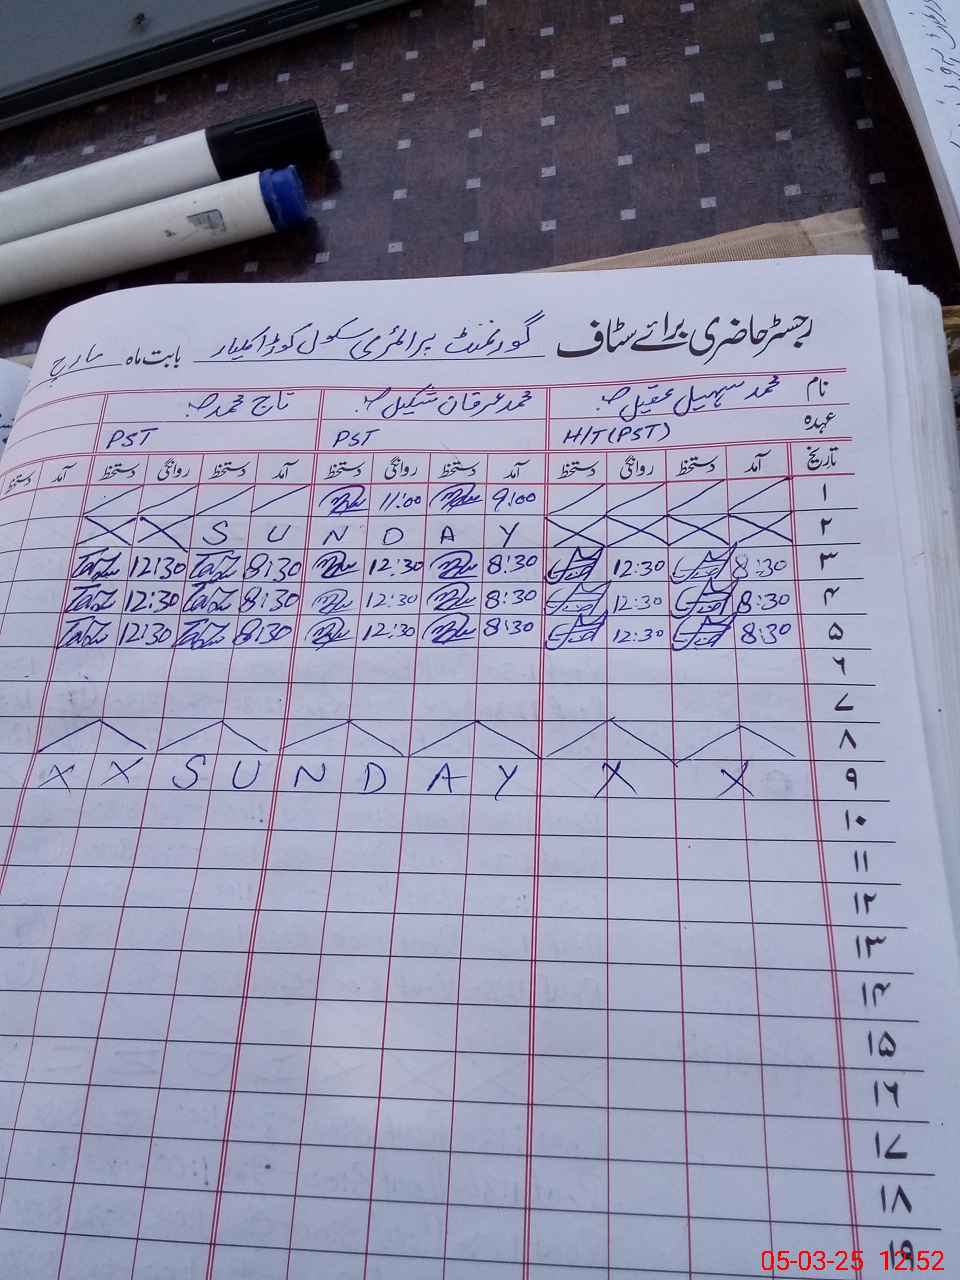 رجسٹر حاضری برائے سٹاف گورنمنٹ پرائمری سکول کوڈاکلیار بابت ماہ مارچ
نام محمد سہیل عقیل صہ محمد عرفان شکیل صہ تاج محمد صہ
عہدہ H/T (PST) PST PST
تاریخ آمد دستخط روانگی دستخط آمد دستخط روانگی دستخط آمد دستخط روانگی دستخط آمد دستخط
۱ 9:00 11:00
۲ S U N D A Y
۳ 8:30 12:30 8:30 12:30 8:30 12:30
۴ 8:30 12:30 8:30 12:30 8:30 12:30
۵ 8:30 12:30 8:30 12:30 8:30 12:30
۶
۷
۸
۹ X X S U N D A Y X X
۱۰
۱۱
۱۲
۱۳
۱۴
۱۵
۱۶
۱۷
۱۸
۱۹
05-03-25 12:52